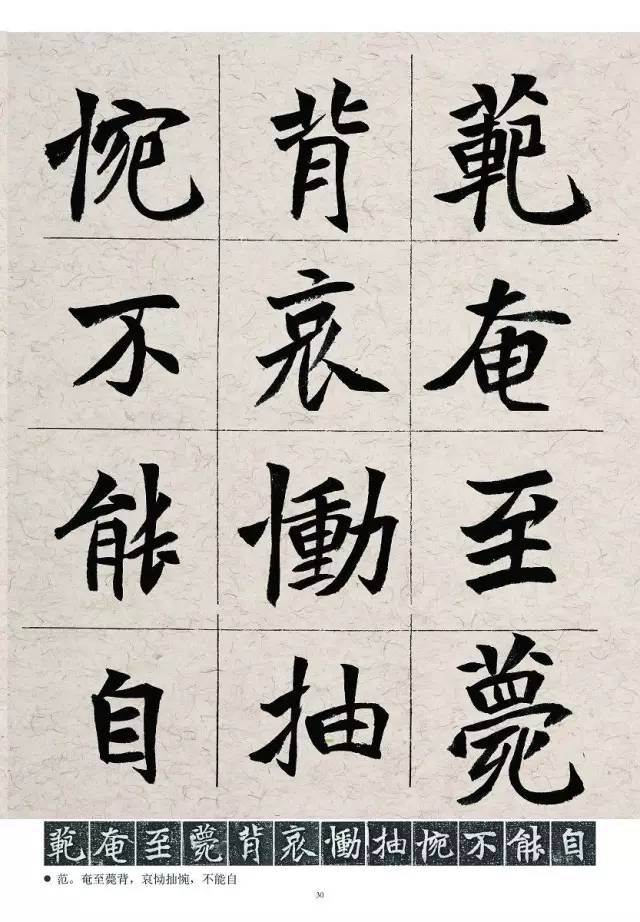 範奄至薨
背哀慟抽
惋不能自
範奄至薨背哀慟抽惋不能自
● 范。奄至薨背，哀恸抽惋，不能自
30